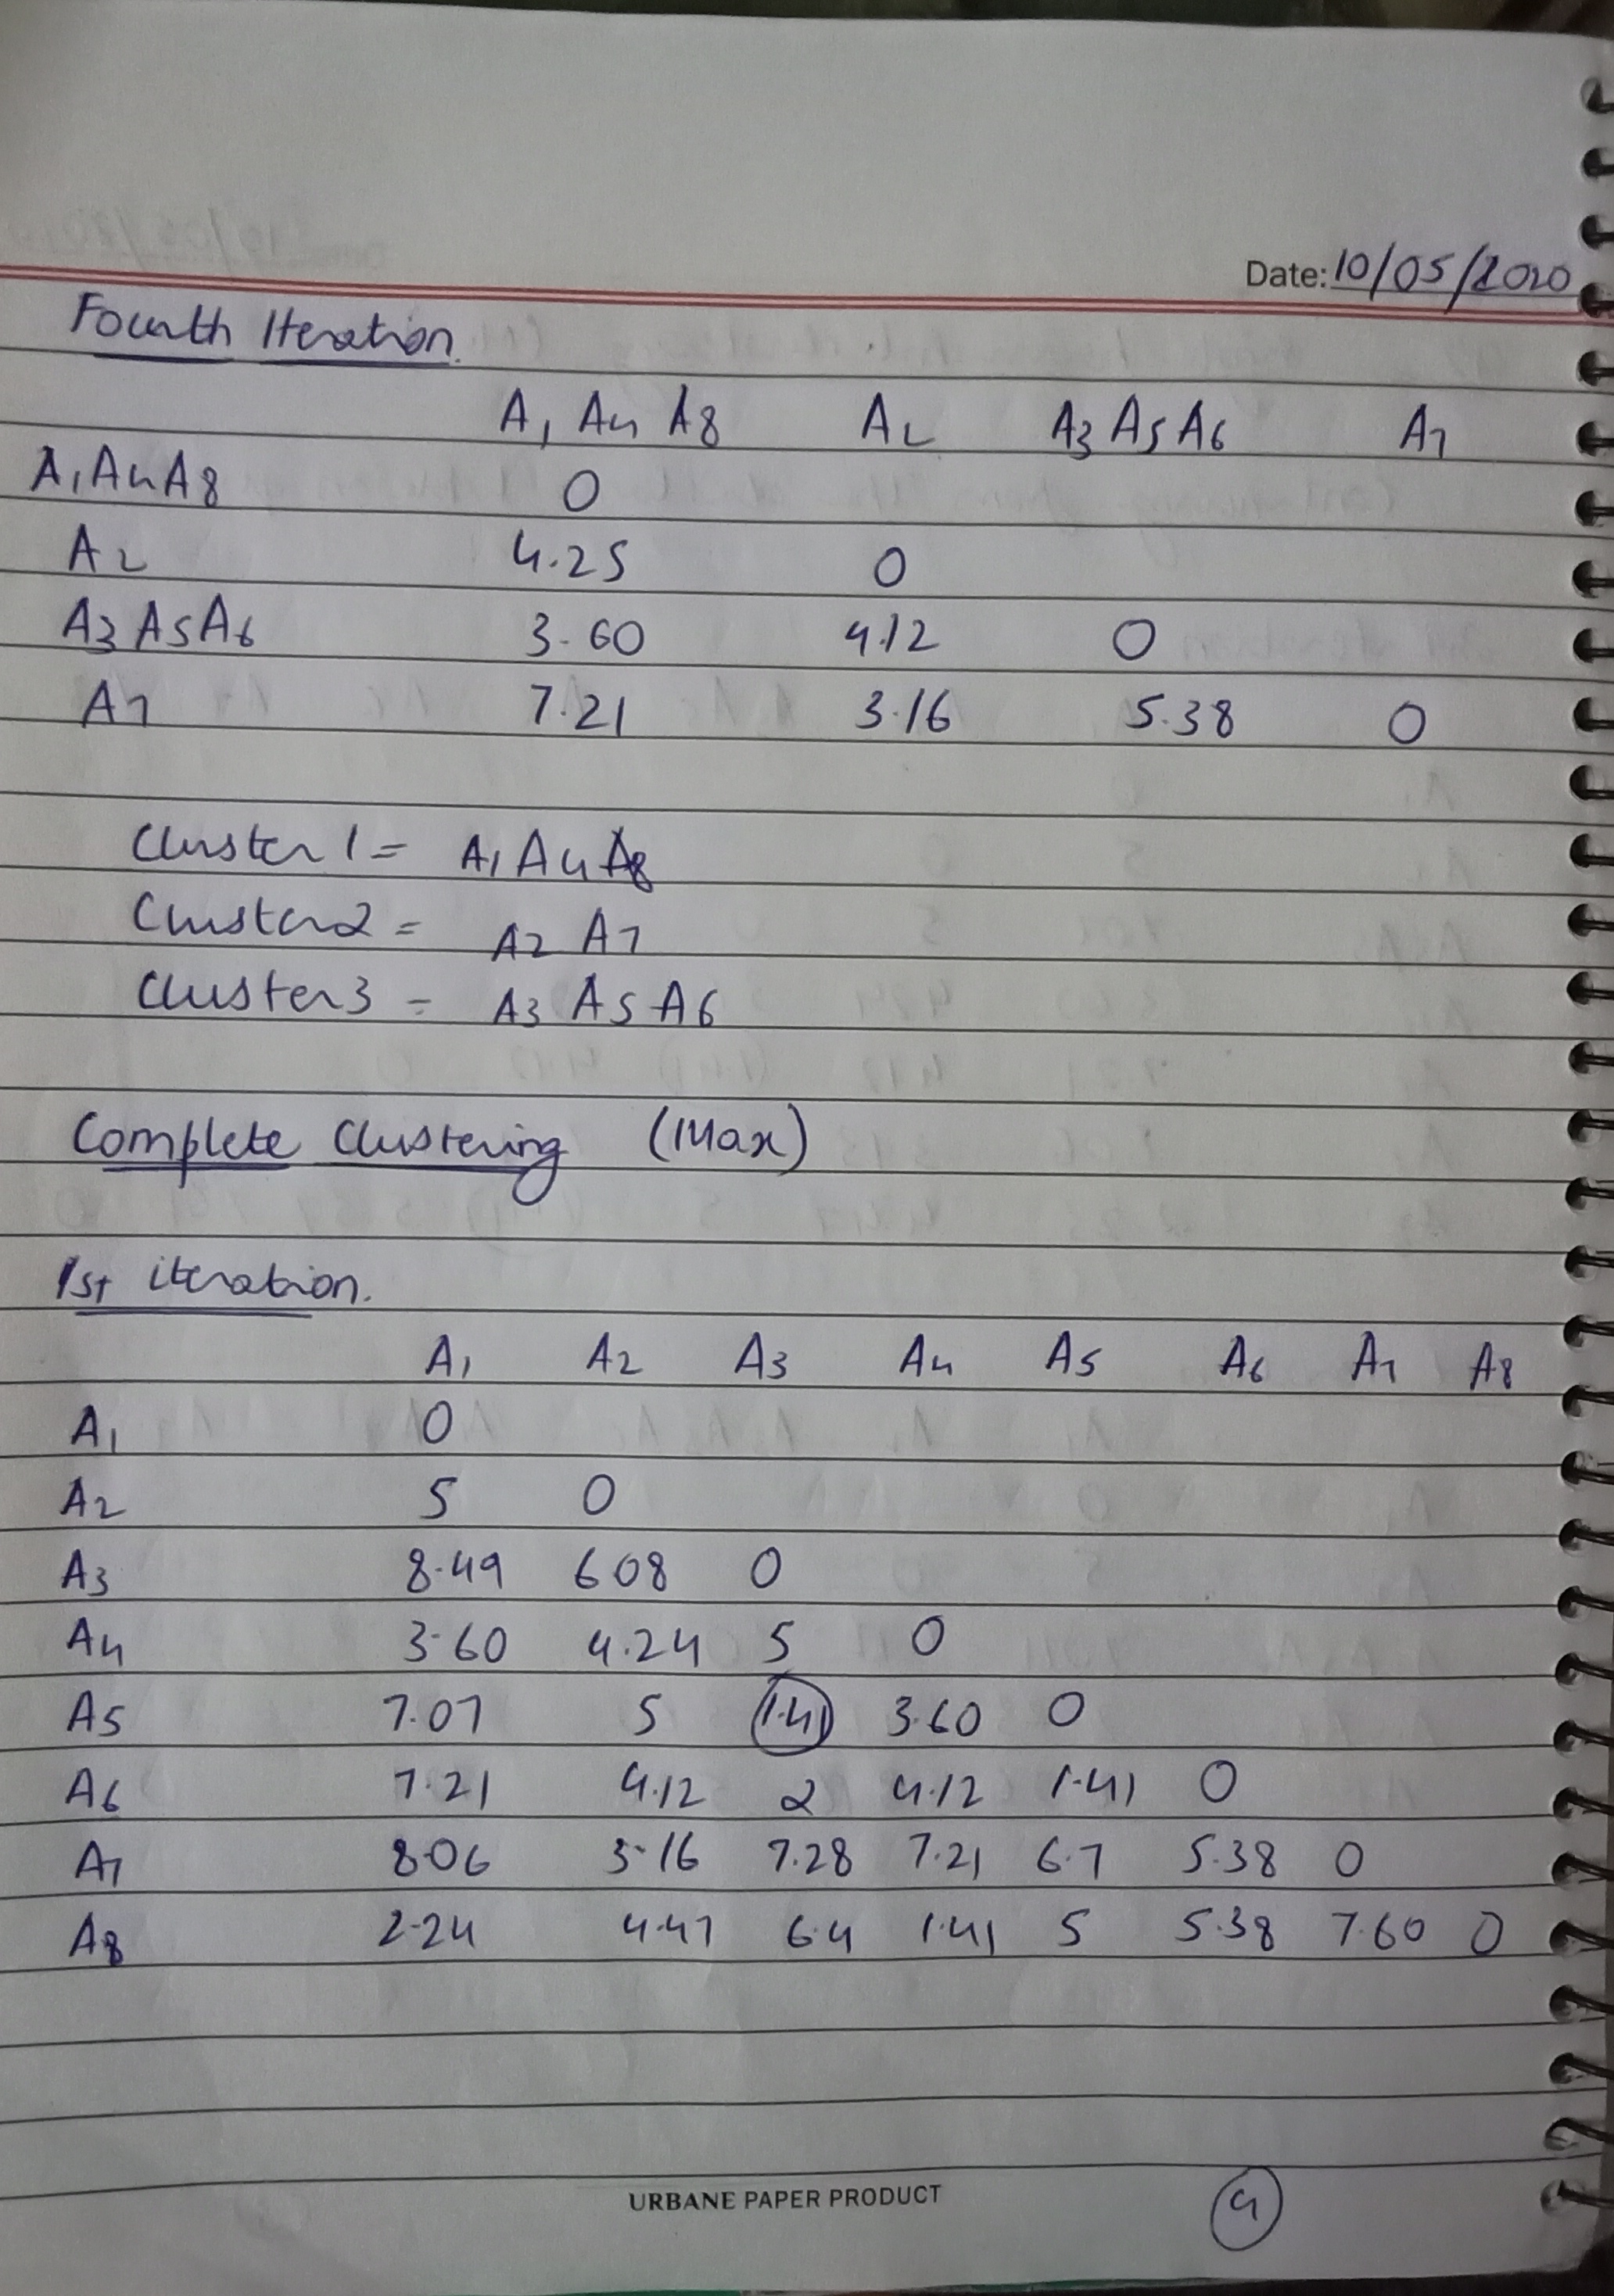 Date: 10/05/2020
Fourth Iteration.
A1 A4 A8 A2 A3 A5 A6 A7
A1 A4 A8 0
A2 4.25 0
A3 A5 A6 3.60 4.12 0
A7 7.21 3.16 5.38 0
Cluster 1 = A1 A4 A8
Cluster 2 = A2 A7
Cluster 3 = A3 A5 A6
Complete Clustering (Max)
1st iteration.
A1 A2 A3 A4 A5 A6 A7 A8
A1 0
A2 5 0
A3 8.49 6.08 0
A4 3.60 4.24 5 0
A5 7.07 5 1.41 3.60 0
A6 7.21 4.12 2 4.12 1.41 0
A7 8.06 3.16 7.28 7.21 6.7 5.38 0
A8 2.24 4.47 6.4 1.41 5 5.38 7.60 0
URBANE PAPER PRODUCT 4